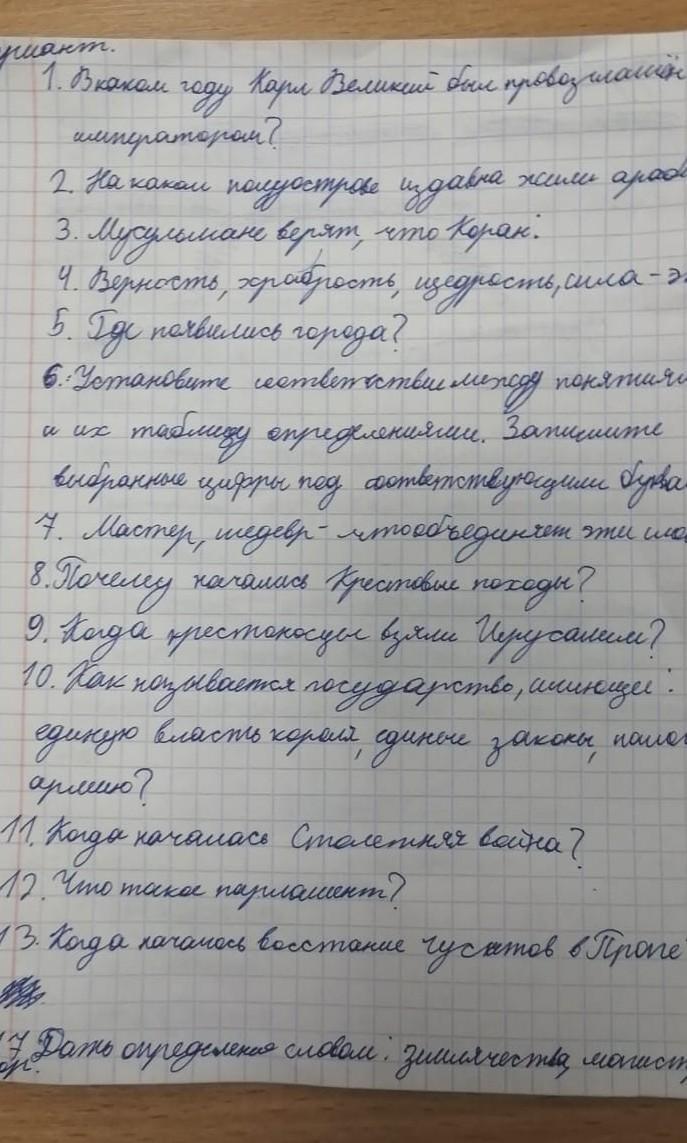 ариант.
1. В каком году Карл Великий был провозглашён
императором?
2. На каком полуострове издавна жили араб
3. Мусульмане верят, что Коран:
4. Верность, храбрость, щедрость, сила - э
5. Где появились города?
6. Установите соответствие между понятиям
и их таблицу определениями. Запишите
выбранные цифры под соответствующими буква
7. Мастер, шедевр - что объединяет эти сло
8. Почему начались Крестовые походы?
9. Когда крестоносцы взяли Иерусалим?
10. Как называется государство, имеющее:
единую власть короля, единые законы, налог
армию?
11. Когда началась Столетняя война?
12. Что такое парламент?
13. Когда началось восстание гуситов в Праге
17 Дать определения словам: землячества, магист